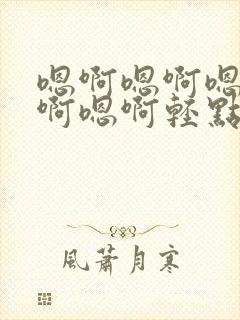 嗯啊嗯啊嗯
啊嗯啊輕點
風蕭月寒